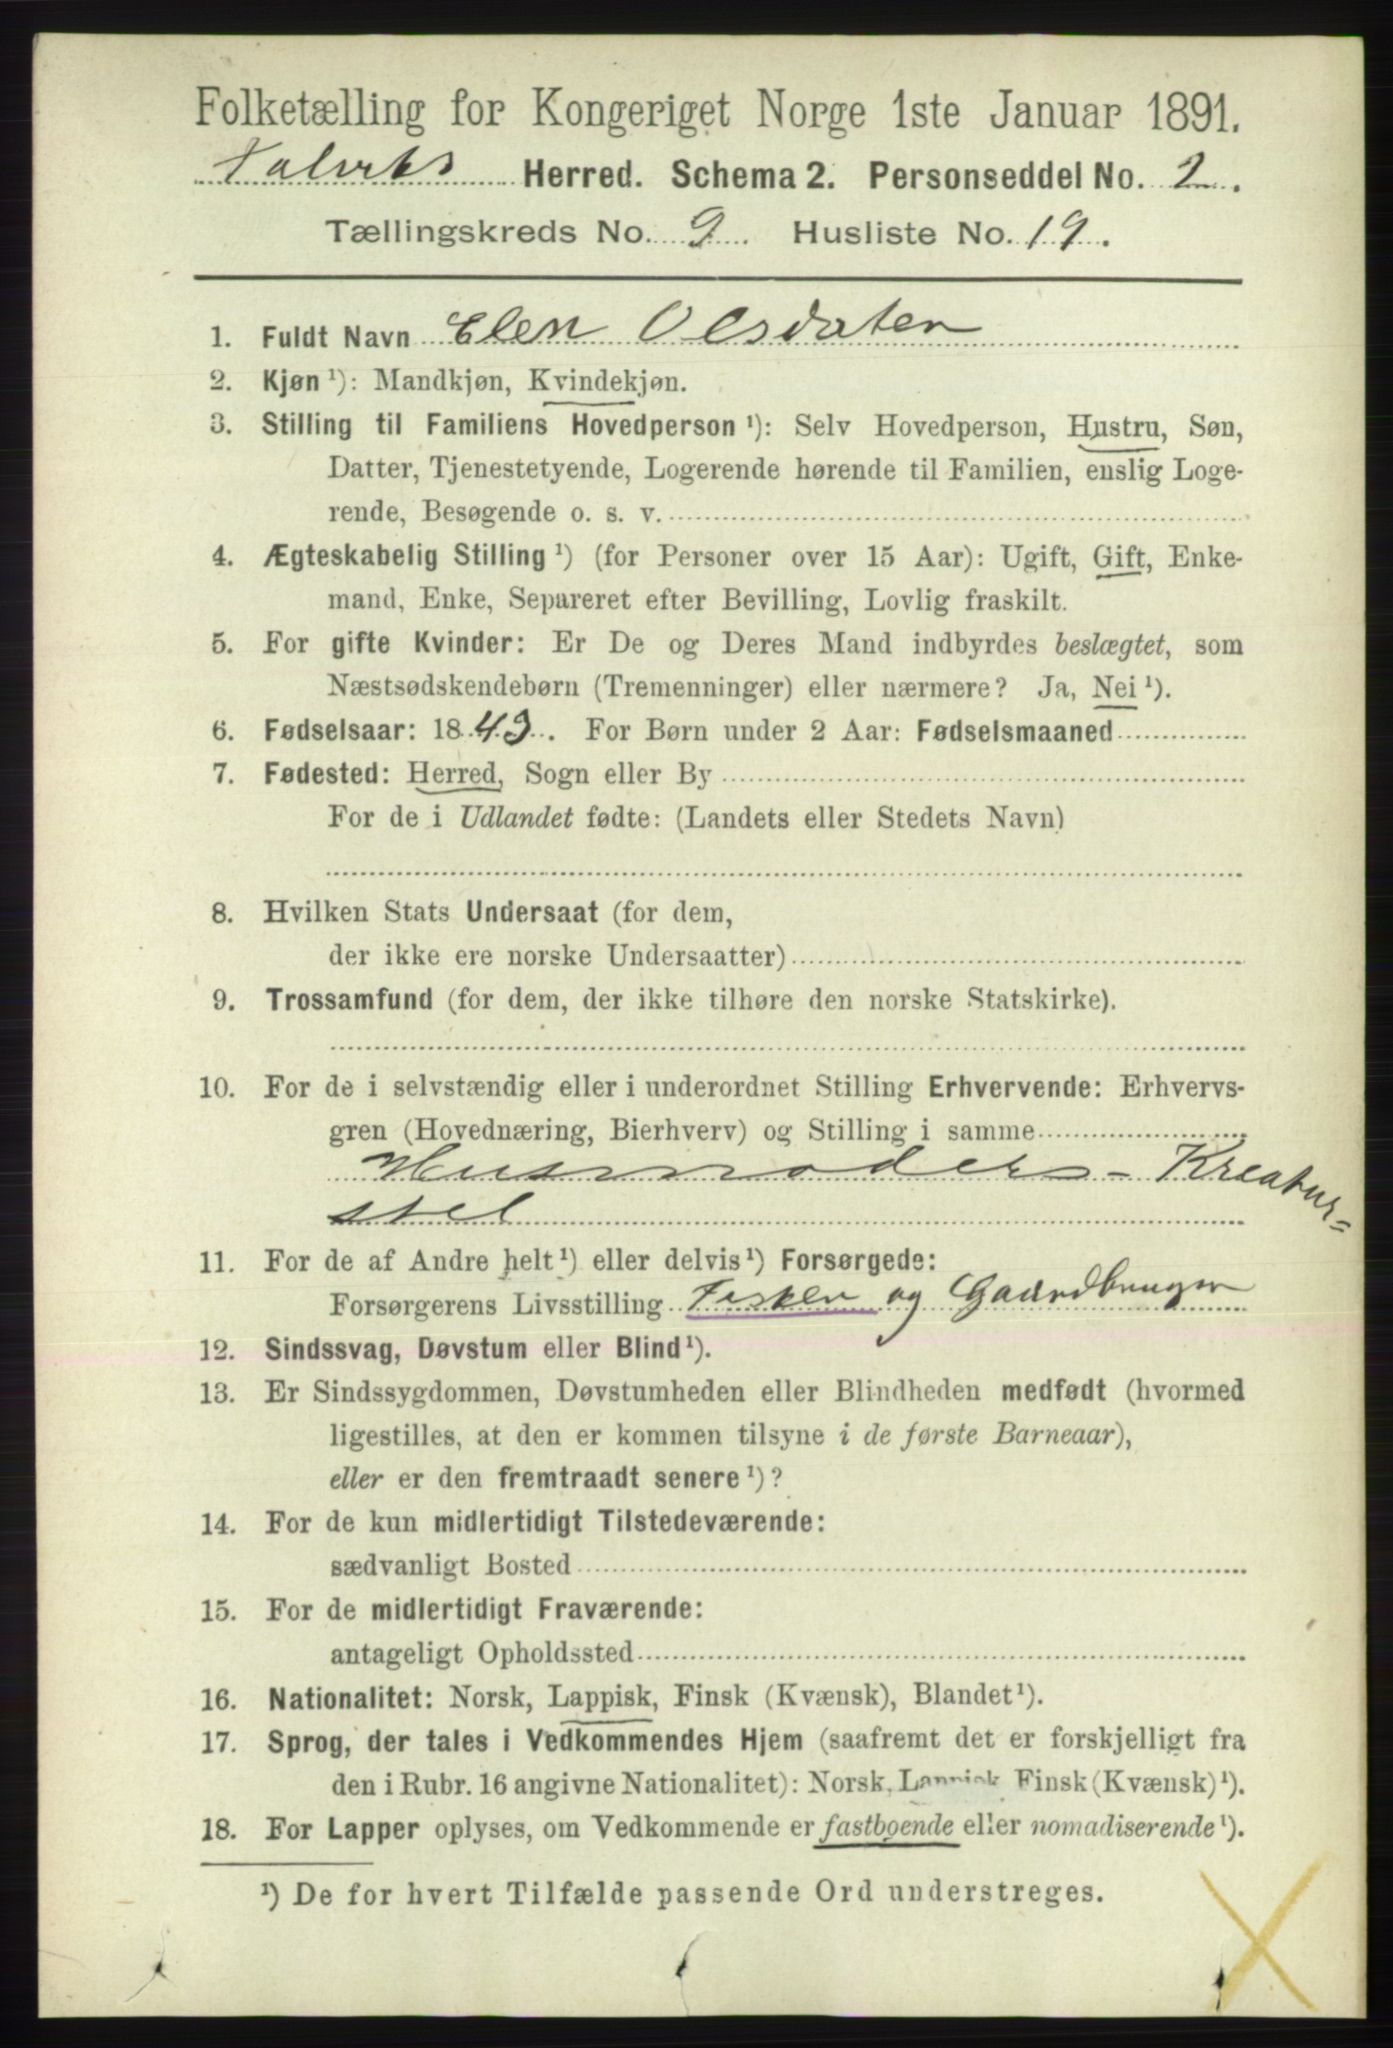 Folketælling for Kongeriget Norge 1ste Januar 1891.
Talviks Herred. Schema 2. Personseddel No. 2.
Tællingskreds No. 9. Husliste No. 19.
1. Fuldt Navn Elen Olsdater
2. Kjøn ¹): Mandkjøn, Kvindekjøn.
3. Stilling til Familiens Hovedperson ¹): Selv Hovedperson, Hustru, Søn,
Datter, Tjenestetyende, Logerende hørende til Familien, enslig Loge-
rende, Besøgende o. s. v.
4. Ægteskabelig Stilling ¹) (for Personer over 15 Aar): Ugift, Gift, Enke-
mand, Enke, Separeret efter Bevilling, Lovlig fraskilt.
5. For gifte Kvinder: Er De og Deres Mand indbyrdes beslægtet, som
Næstsødskendebørn (Tremenninger) eller nærmere? Ja, Nei ¹).
6. Fødselsaar: 1843. For Børn under 2 Aar: Fødselsmaaned
7. Fødested: Herred, Sogn eller By
For de i Udlandet fødte: (Landets eller Stedets Navn)
8. Hvilken Stats Undersaat (for dem,
der ikke ere norske Undersaatter)
9. Trossamfund (for dem, der ikke tilhøre den norske Statskirke).
10. For de i selvstændig eller i underordnet Stilling Erhvervende: Erhvervs-
gren (Hovednæring, Bierhverv) og Stilling i samme
Husmoders - Kreatur=
stel
11. For de af Andre helt ¹) eller delvis ¹) Forsørgede:
Forsørgerens Livsstilling Fisker og Gaardbruger
12. Sindssvag, Døvstum eller Blind ¹).
13. Er Sindssygdommen, Døvstumheden eller Blindheden medfødt (hvormed
ligestilles, at den er kommen tilsyne i de første Barneaar),
eller er den fremtraadt senere ¹)?
14. For de kun midlertidigt Tilstedeværende:
sædvanligt Bosted
15. For de midlertidigt Fraværende:
antageligt Opholdssted
16. Nationalitet: Norsk, Lappisk, Finsk (Kvænsk), Blandet ¹).
17. Sprog, der tales i Vedkommendes Hjem (saafremt det er forskjelligt fra
den i Rubr. 16 angivne Nationalitet): Norsk, Lappisk Finsk (Kvænsk) ¹).
18. For Lapper oplyses, om Vedkommende er fastboende eller nomadiserende ¹).
¹) De for hvert Tilfælde passende Ord understreges.